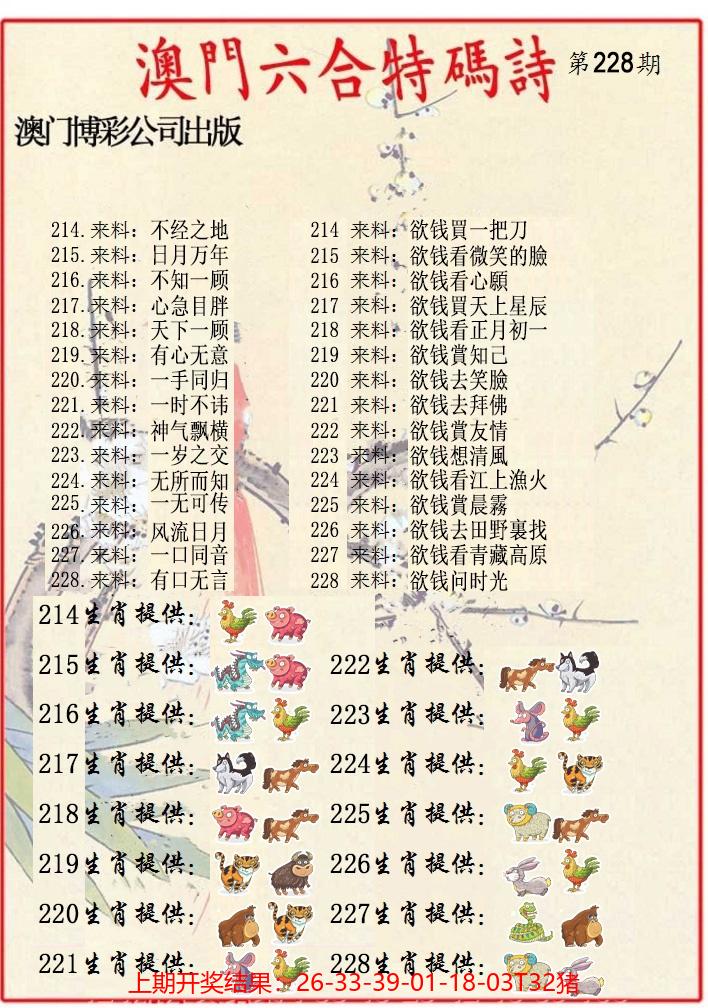 澳門六合特碼詩 第228期
澳门博彩公司出版
214.来料：不经之地
215.来料：日月万年
216.来料：不知一顾
217.来料：心急目胖
218.来料：天下一顾
219.来料：有心无意
220.来料：一手同归
221.来料：一时不讳
222.来料：神气飘横
223.来料：一岁之交
224.来料：无所而知
225.来料：一无可传
226.来料：风流日月
227.来料：一口同音
228.来料：有口无言
214 来料：欲钱買一把刀
215 来料：欲钱看微笑的臉
216 来料：欲钱看心願
217 来料：欲钱買天上星辰
218 来料：欲钱看正月初一
219 来料：欲钱賞知己
220 来料：欲钱去笑臉
221 来料：欲钱去拜佛
222 来料：欲钱賞友情
223 来料：欲钱想清風
224 来料：欲钱看江上漁火
225 来料：欲钱賞晨霧
226 来料：欲钱去田野裏找
227 来料：欲钱看青藏高原
228 来料：欲钱问时光
214生肖提供：
215生肖提供：
216生肖提供：
217生肖提供：
218生肖提供：
219生肖提供：
220生肖提供：
221生肖提供：
222生肖提供：
223生肖提供：
224生肖提供：
225生肖提供：
226生肖提供：
227生肖提供：
228生肖提供：
上期开奖结果：26-33-39-01-18-03T32猪